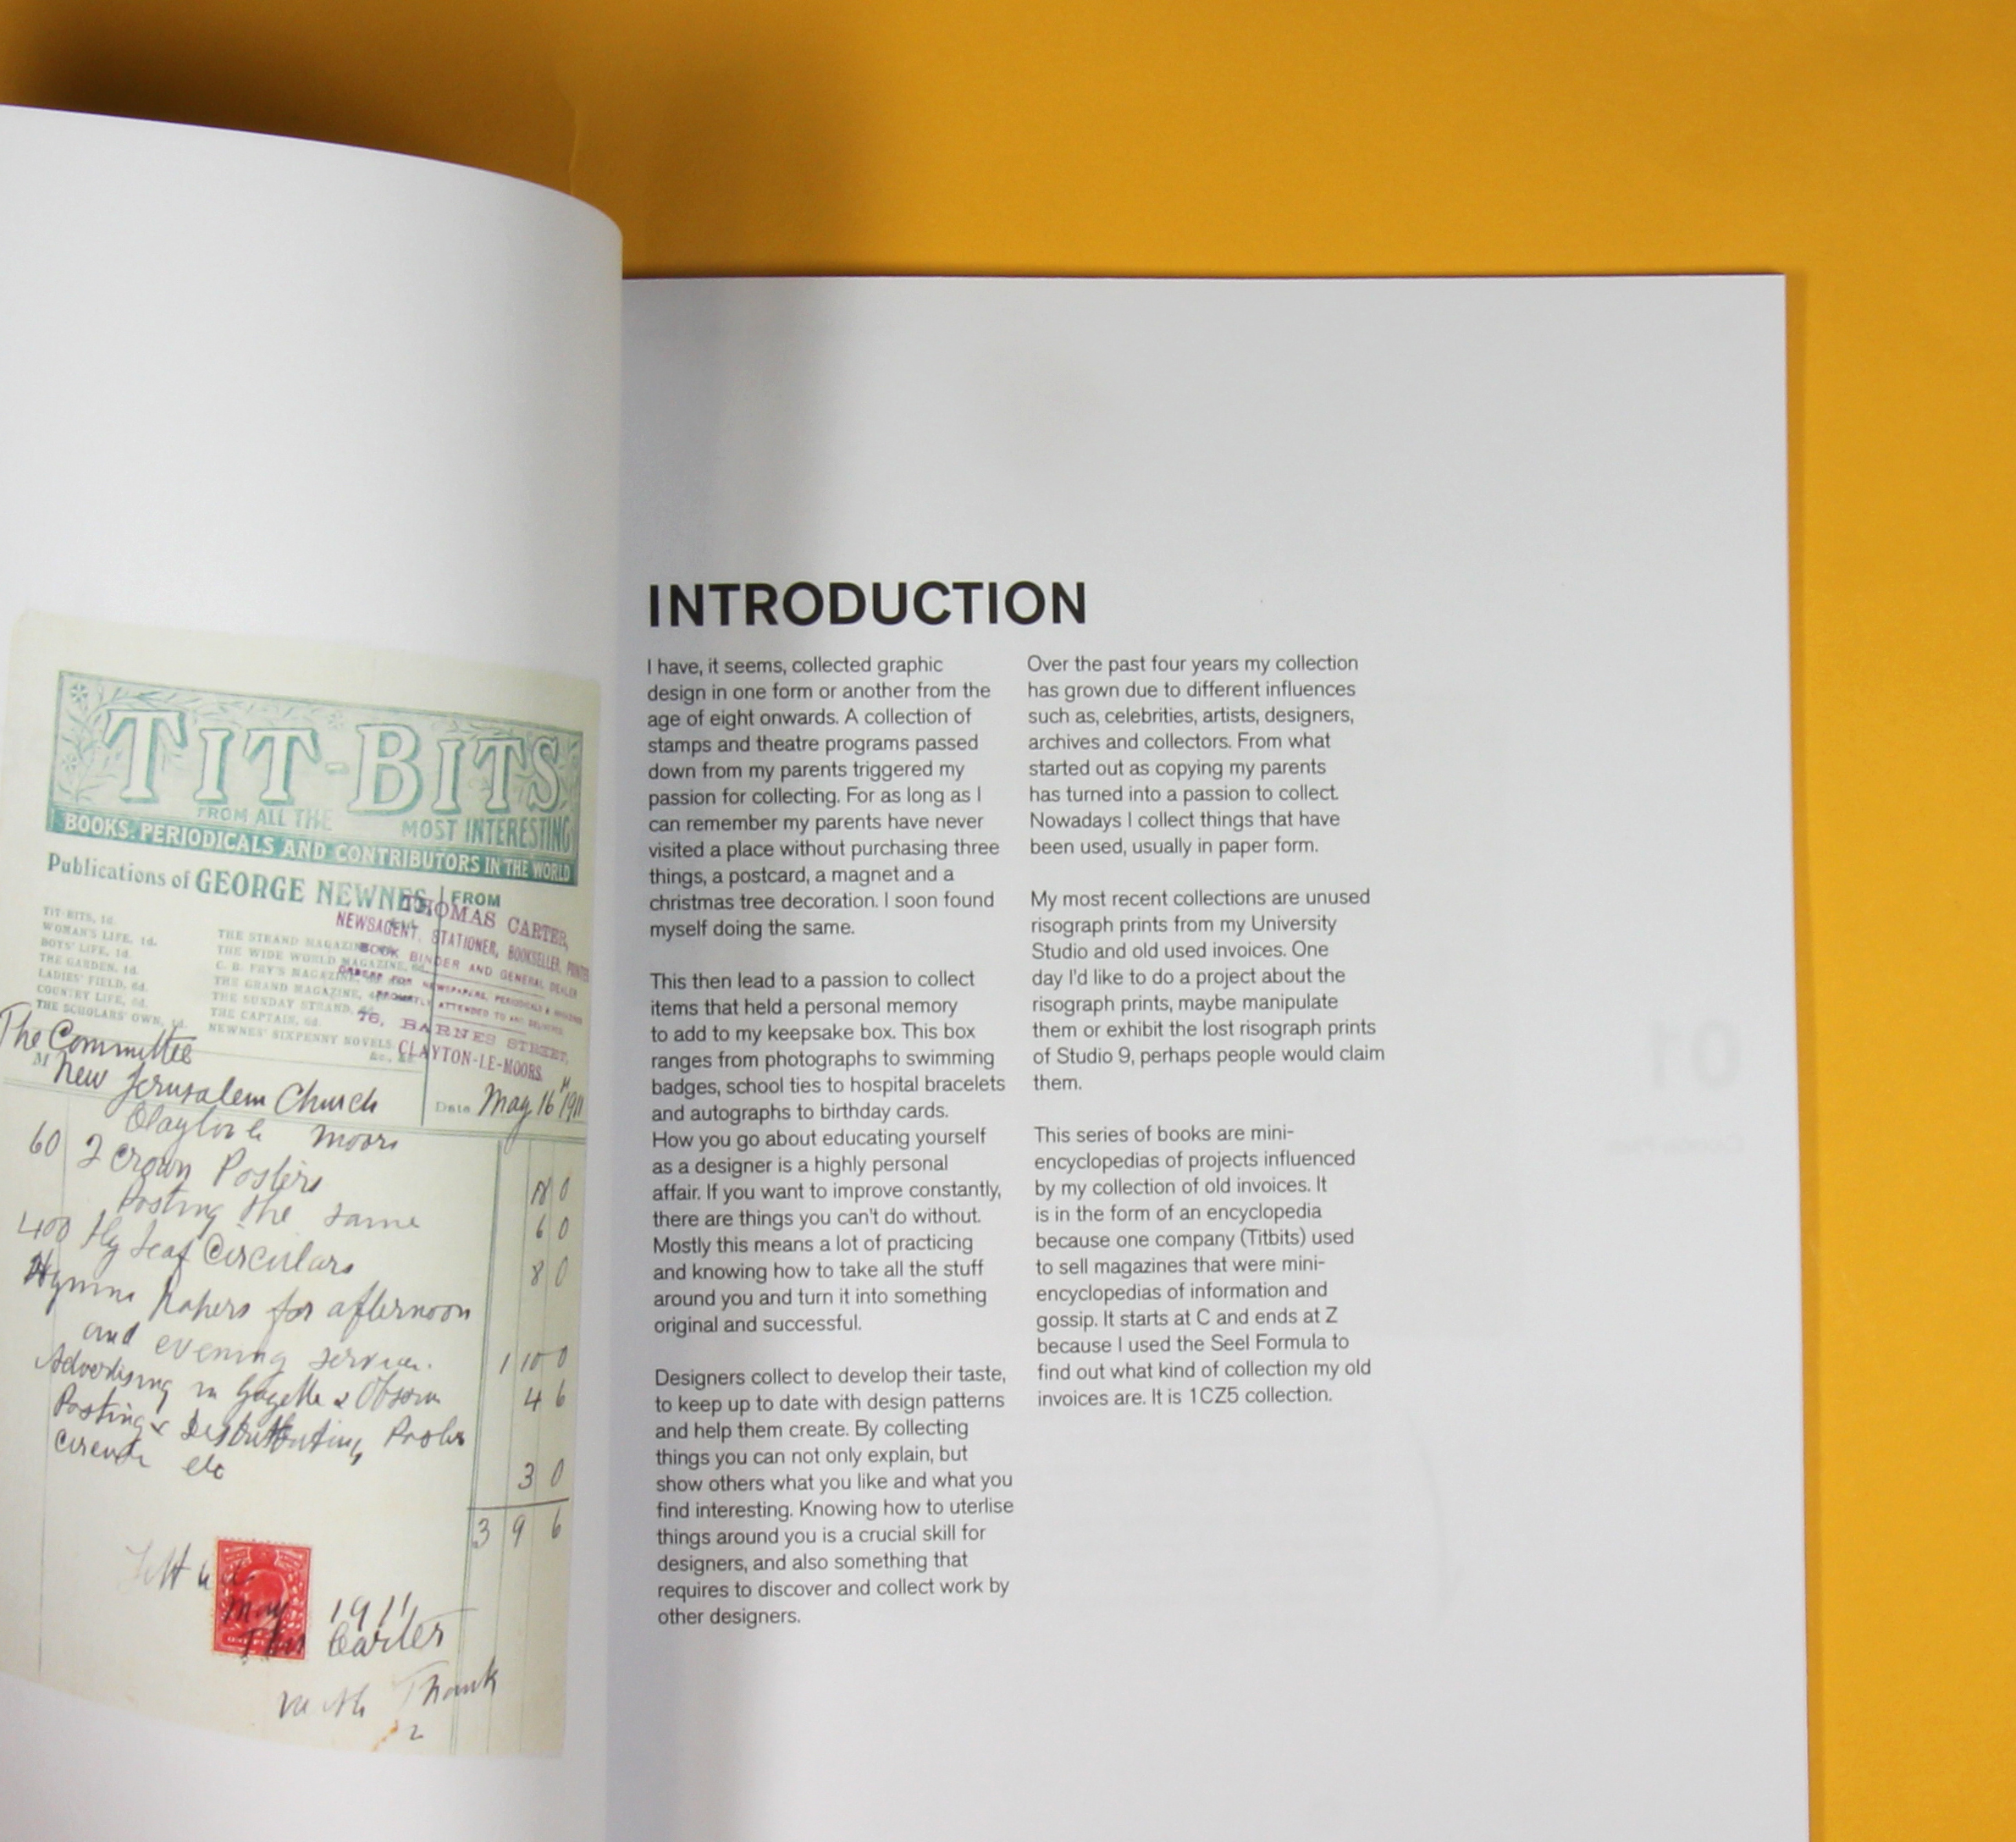 TIT-BITS
FROM ALL THE MOST INTERESTING
BOOKS. PERIODICALS AND CONTRIBUTORS IN THE WORLD
Publications of GEORGE NEWNES FROM
TIT-BITS, 1d.
WOMAN'S LIFE, 1d.
BOYS' LIFE, 1d.
THE GARDEN, 1d.
LADIES' FIELD, 6d.
COUNTRY LIFE, 6d.
THE SCHOLARS' OWN, 1d.
THE STRAND MAGAZINE
THE WIDE WORLD MAGAZINE, 6d.
C. B. FRY'S MAGAZINE,
THE GRAND MAGAZINE,
THE SUNDAY STRAND,
THE CAPTAIN, 6d.
NEWNES' SIXPENNY NOVELS
&c., &c.
THOMAS CARTER,
NEWSAGENT, STATIONER, BOOKSELLER, PRINTER
BOOK BINDER AND GENERAL DEALER
ORDERS FOR NEWSPAPERS, PERIODICALS &
PROMPTLY ATTENDED TO AND DELIVERED
76, BARNES STREET,
CLAYTON-LE-MOORS.
The Committee
M New Jerusalem Church
Date May 16th 1911
Moors
60 2 Crown Posters
18 0
Posting the same 6 0
400 Fly Leaf Circulars 8 0
Hymns Papers for afternoon
and evening service. 1 10 0
Advertising in Gazette & 4 6
Posting & Distributing
etc 3 0
3 9 6
May 1911
Carter
with Thanks
INTRODUCTION
I have, it seems, collected graphic
design in one form or another from the
age of eight onwards. A collection of
stamps and theatre programs passed
down from my parents triggered my
passion for collecting. For as long as I
can remember my parents have never
visited a place without purchasing three
things, a postcard, a magnet and a
christmas tree decoration. I soon found
myself doing the same.
This then lead to a passion to collect
items that held a personal memory
to add to my keepsake box. This box
ranges from photographs to swimming
badges, school ties to hospital bracelets
and autographs to birthday cards.
How you go about educating yourself
as a designer is a highly personal
affair. If you want to improve constantly,
there are things you can't do without.
Mostly this means a lot of practicing
and knowing how to take all the stuff
around you and turn it into something
original and successful.
Designers collect to develop their taste,
to keep up to date with design patterns
and help them create. By collecting
things you can not only explain, but
show others what you like and what you
find interesting. Knowing how to uterlise
things around you is a crucial skill for
designers, and also something that
requires to discover and collect work by
other designers.
Over the past four years my collection
has grown due to different influences
such as, celebrities, artists, designers,
archives and collectors. From what
started out as copying my parents
has turned into a passion to collect.
Nowadays I collect things that have
been used, usually in paper form.
My most recent collections are unused
risograph prints from my University
Studio and old used invoices. One
day I'd like to do a project about the
risograph prints, maybe manipulate
them or exhibit the lost risograph prints
of Studio 9, perhaps people would claim
them.
This series of books are mini-
encyclopedias of projects influenced
by my collection of old invoices. It
is in the form of an encyclopedia
because one company (Titbits) used
to sell magazines that were mini-
encyclopedias of information and
gossip. It starts at C and ends at Z
because I used the Seel Formula to
find out what kind of collection my old
invoices are. It is 1CZ5 collection.